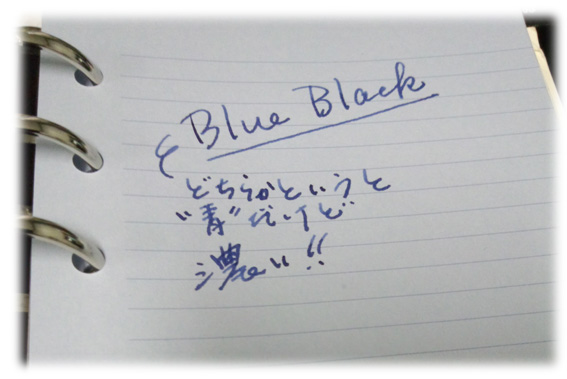 Blue Black
どちらかというと
"青"だけど
濃い!!